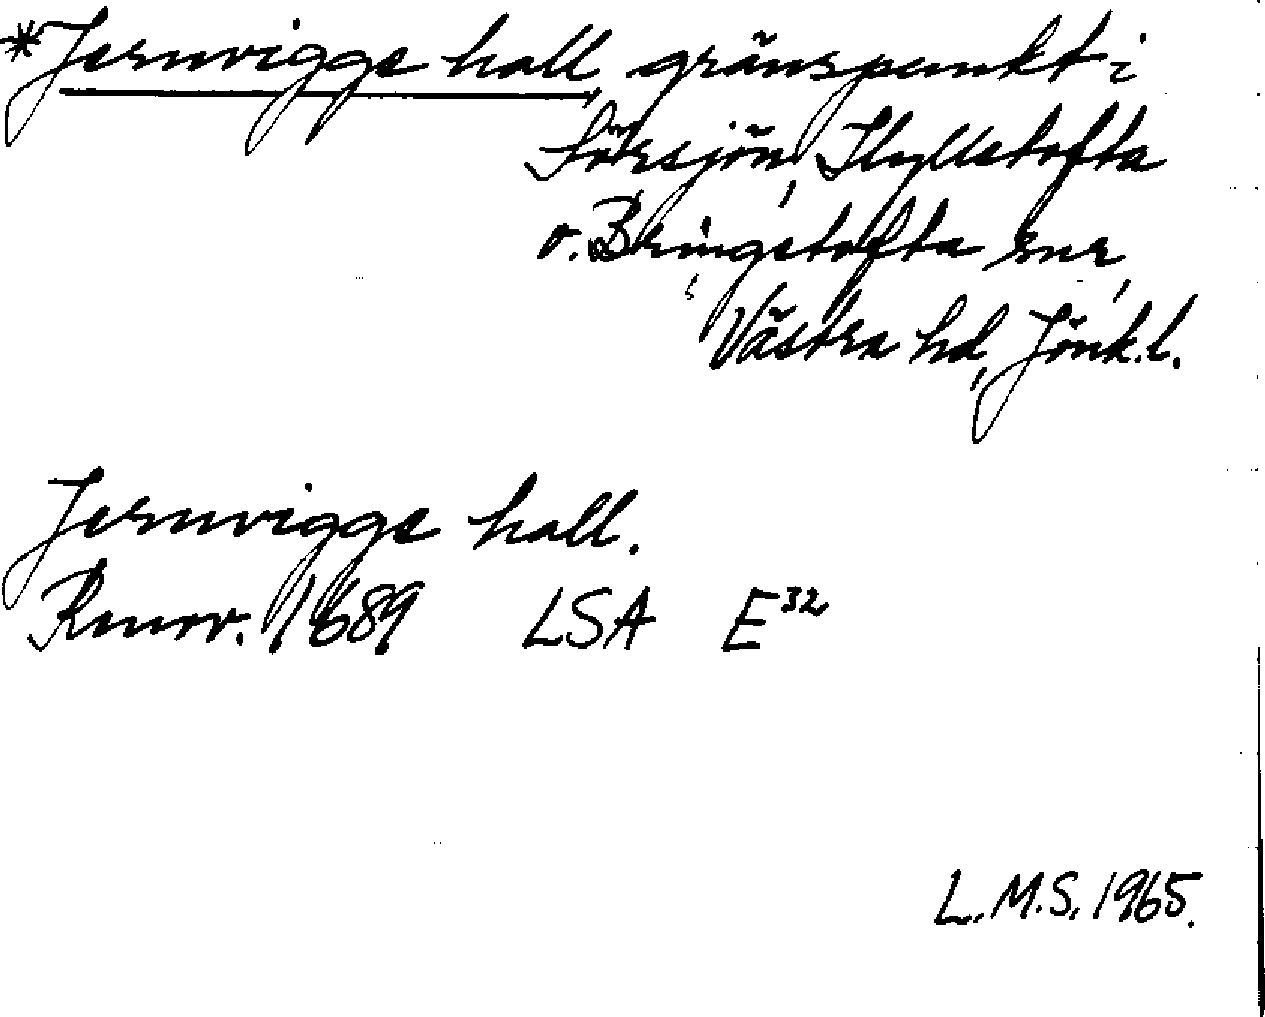 *Jernvigge hall, gränspunkt i
Sörsjön, Hylletofta
o. Bringetofta snr,
Västra hd, Jönk.l.
Jernvigge hall.
Renov. 1689 LSA E³²
L.M.S. 1965.